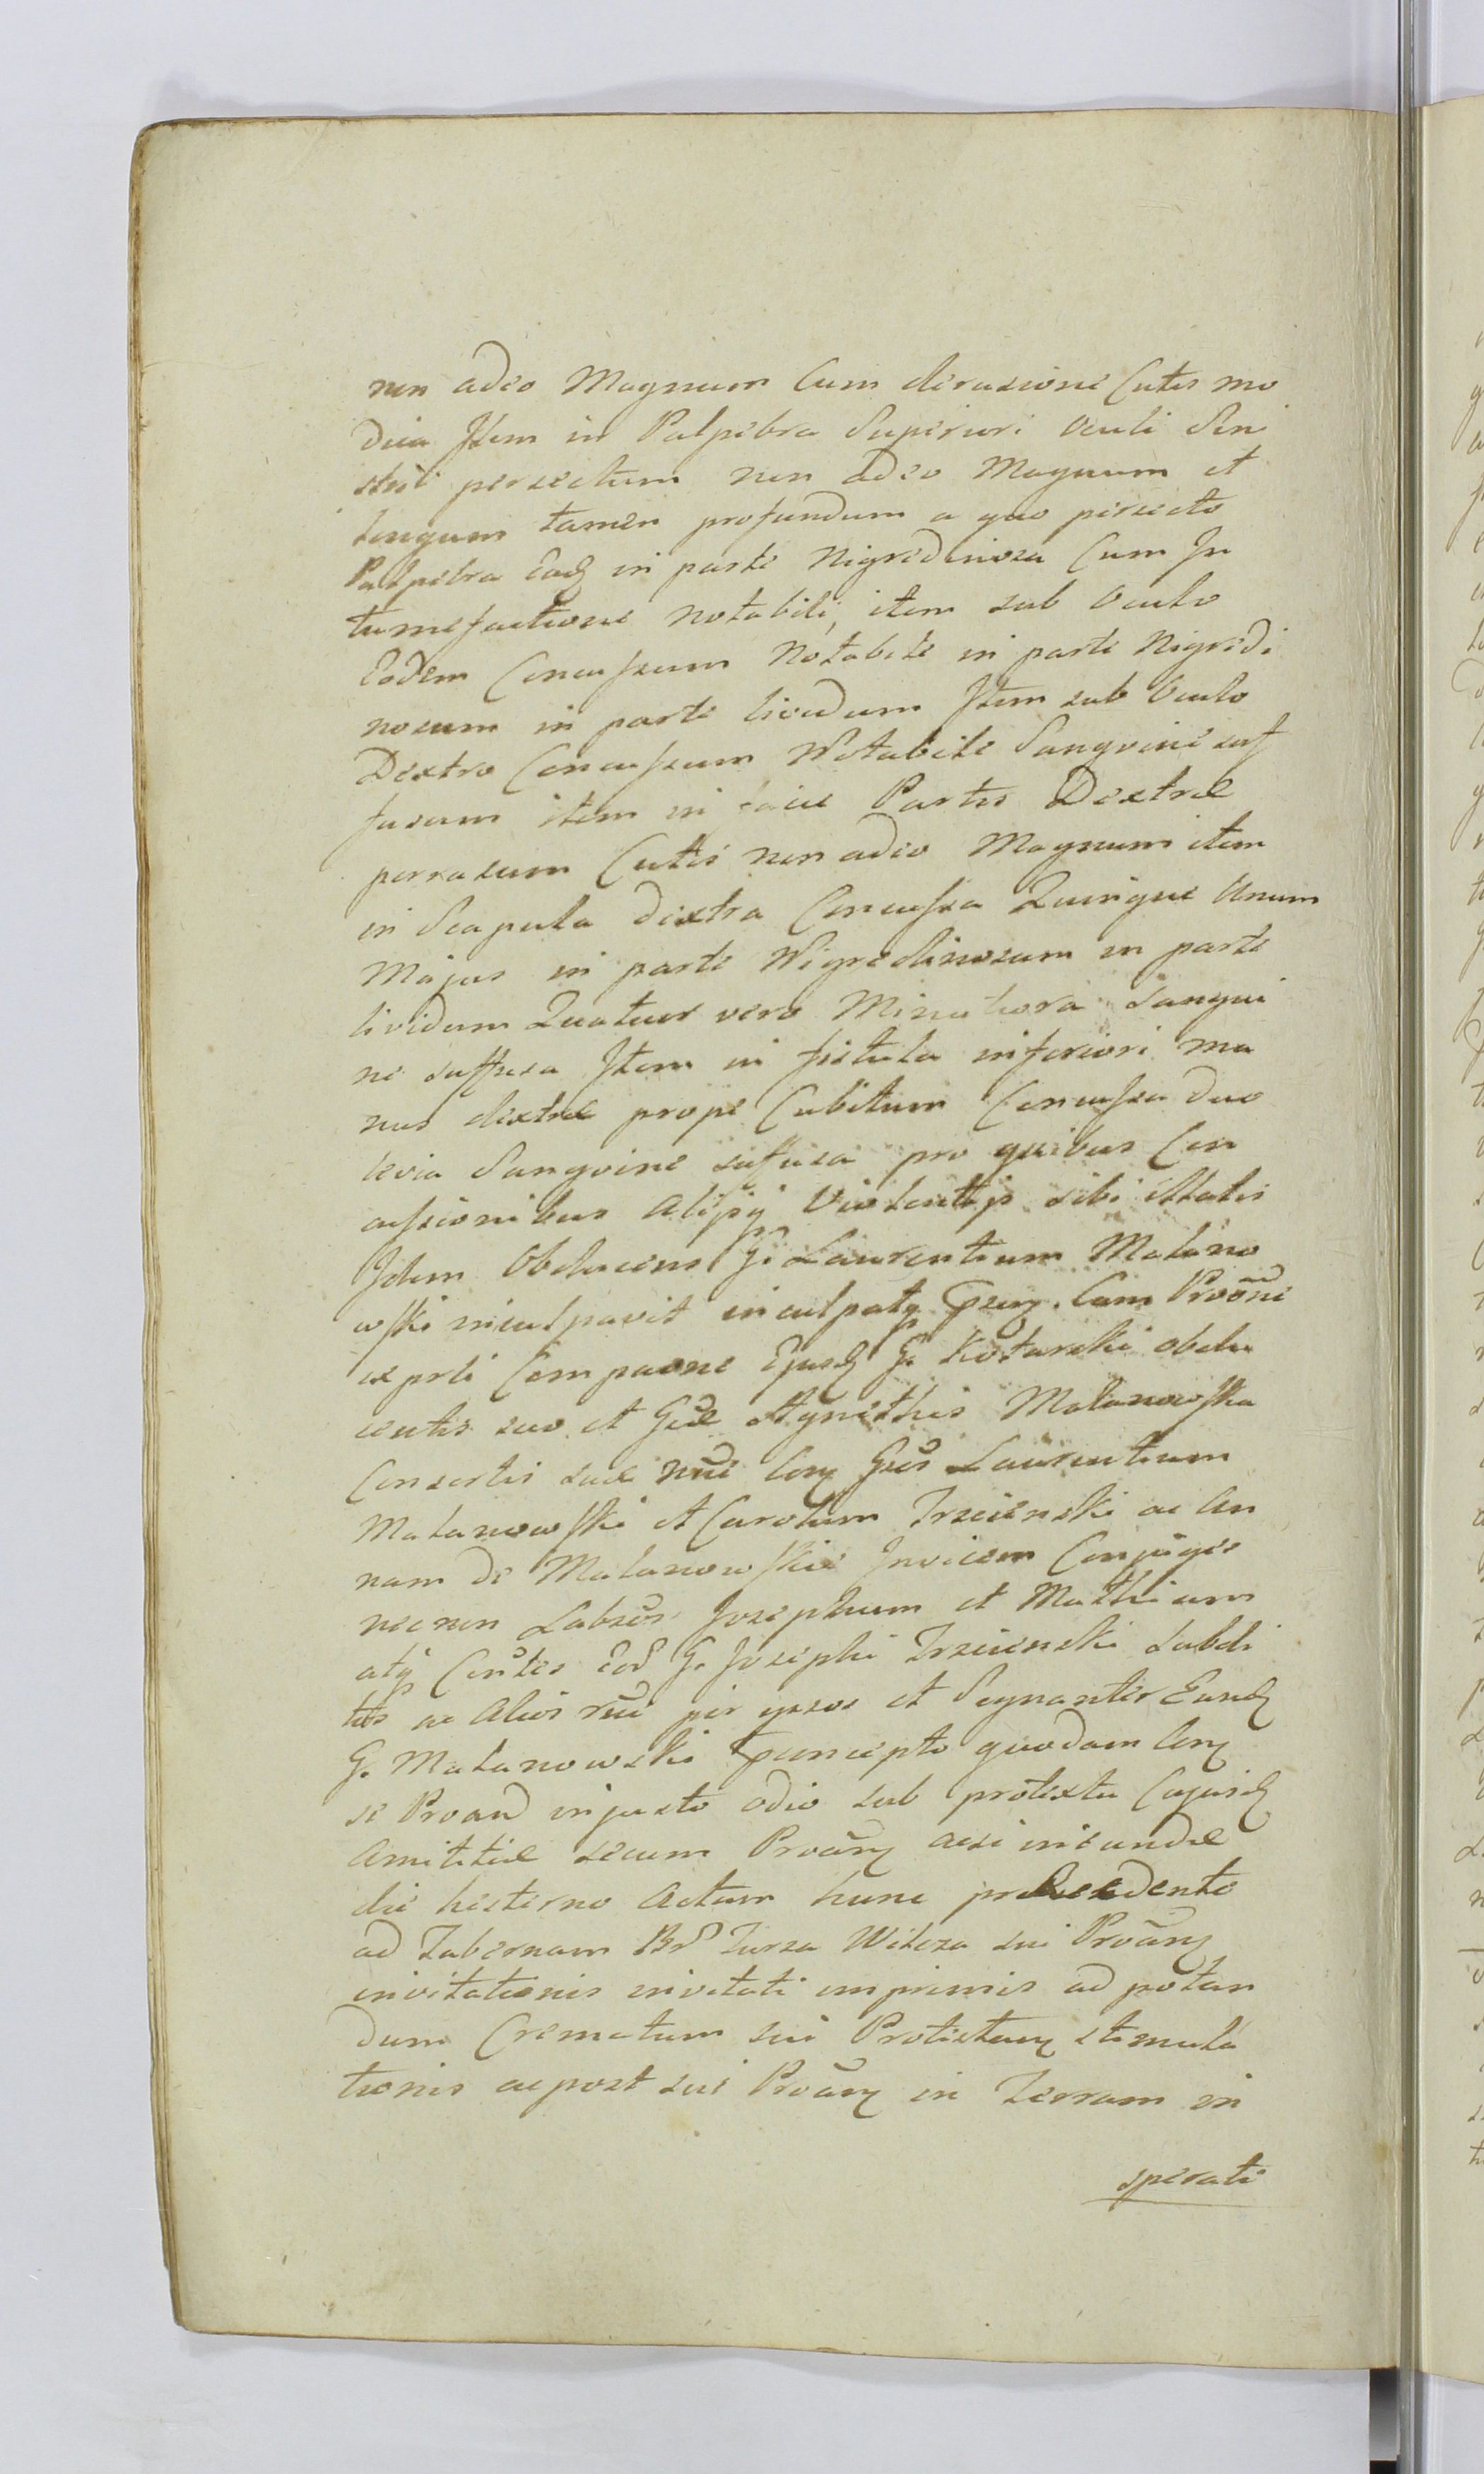 non adeo Magnum Cum derasione Cutis mo
dica Item in Palpebra Superiori Oculi Sin
istri persectum non adeo Magnum et
longum tamen profundum a quo persecto
Palpebra Eadꝫ in parte Nigredinosa Cum In
tumefactione notabili, item sub Oculo
Eodem Concussum Notabile in parte Nigredi
nosum in parte lividum Item sub Oculo
Dextro Concussum Notabile Sangvine suf
fusum item in facie Partis Dextræ
perrasum Cutis non adeo Magnum item
in Scapula dextra Concussa Quinque Unum
Majus in parte Nigredinosum in parte
lividum Quatuor vero Minutiora sangui
ne suffusa Item in fistula inferiori ma
nus dextræ prope Cubitum Concussa duo
levia Sangvine suffusa pro quibus Con
cussionibus aliisqꝫ Violentiis sibi illatis
Idem Obducens G. Laurentium Malano
wski inculpavit
ex parte Ejusdꝫ G. Kotarski obdu
centis suo et Gsæ Agnethis Malanowska
Consortis suæ nõe Cog Gsos Laurentium
Malanowski et Carolum Trzcienski ac An
nam de Malanowskie Invicem Conjuges
nec non Labsos Josephum et Mathiam
atq Eod G. Josephi Trzcienski subdi
tos ac alios per ipsos et Signanter Eundꝫ
G. Malanowski concepto quodam Cog
se Proand injusto odio sub prætextu Cujusdꝫ
Amititiæ secum Proang acsi ineundæ
die hesterno Actum hunc præcedente
ad Tabernam Turza Wilcza sui Proang
invitationis invitati imprimis ad potan
dum Crematum sui Protestang stimula
tionis ac post sui Proang in Terram in
sperati